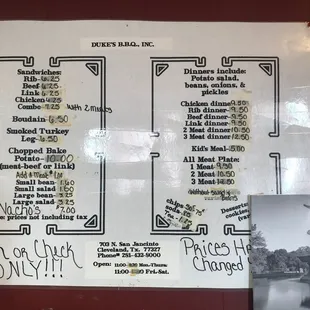 DUKE'S B.B.Q., INC.
Sandwiches:
Rib 6.25
Beef 6.25
Link 6.25
Chicken 6.25
Combo 7.25 with 2 meats
Boudain 6.50
Smoked Turkey
Leg 6.50
Chopped Bake
Potato 10.00
(meat-beef or link)
Add a Meat
Small bean
Small salad
Large bean
Large salad
Nachos 7.00
prices not including tax
Dinners include:
Potato salad,
beans, onions, &
pickles
Chicken dinner 9.50
Rib dinner 9.50
Beef dinner 9.50
Link dinner 9.50
2 Meat dinner 10.50
3 Meat dinner 12.50
Kid's Meal 5.00
All Meat Plate:
1 Meat 9.50
2 Meat 10.50
3 Meat
chips
Desserts
cookies,
703 N. San Jancinto
Cleveland, Tx. 77327
Phone# 281-432-9000
Open: 11:00 Mon-Thurs.
11:00 Fri.-Sat.
or Check
ONLY!!!
Prices Ha
Changed